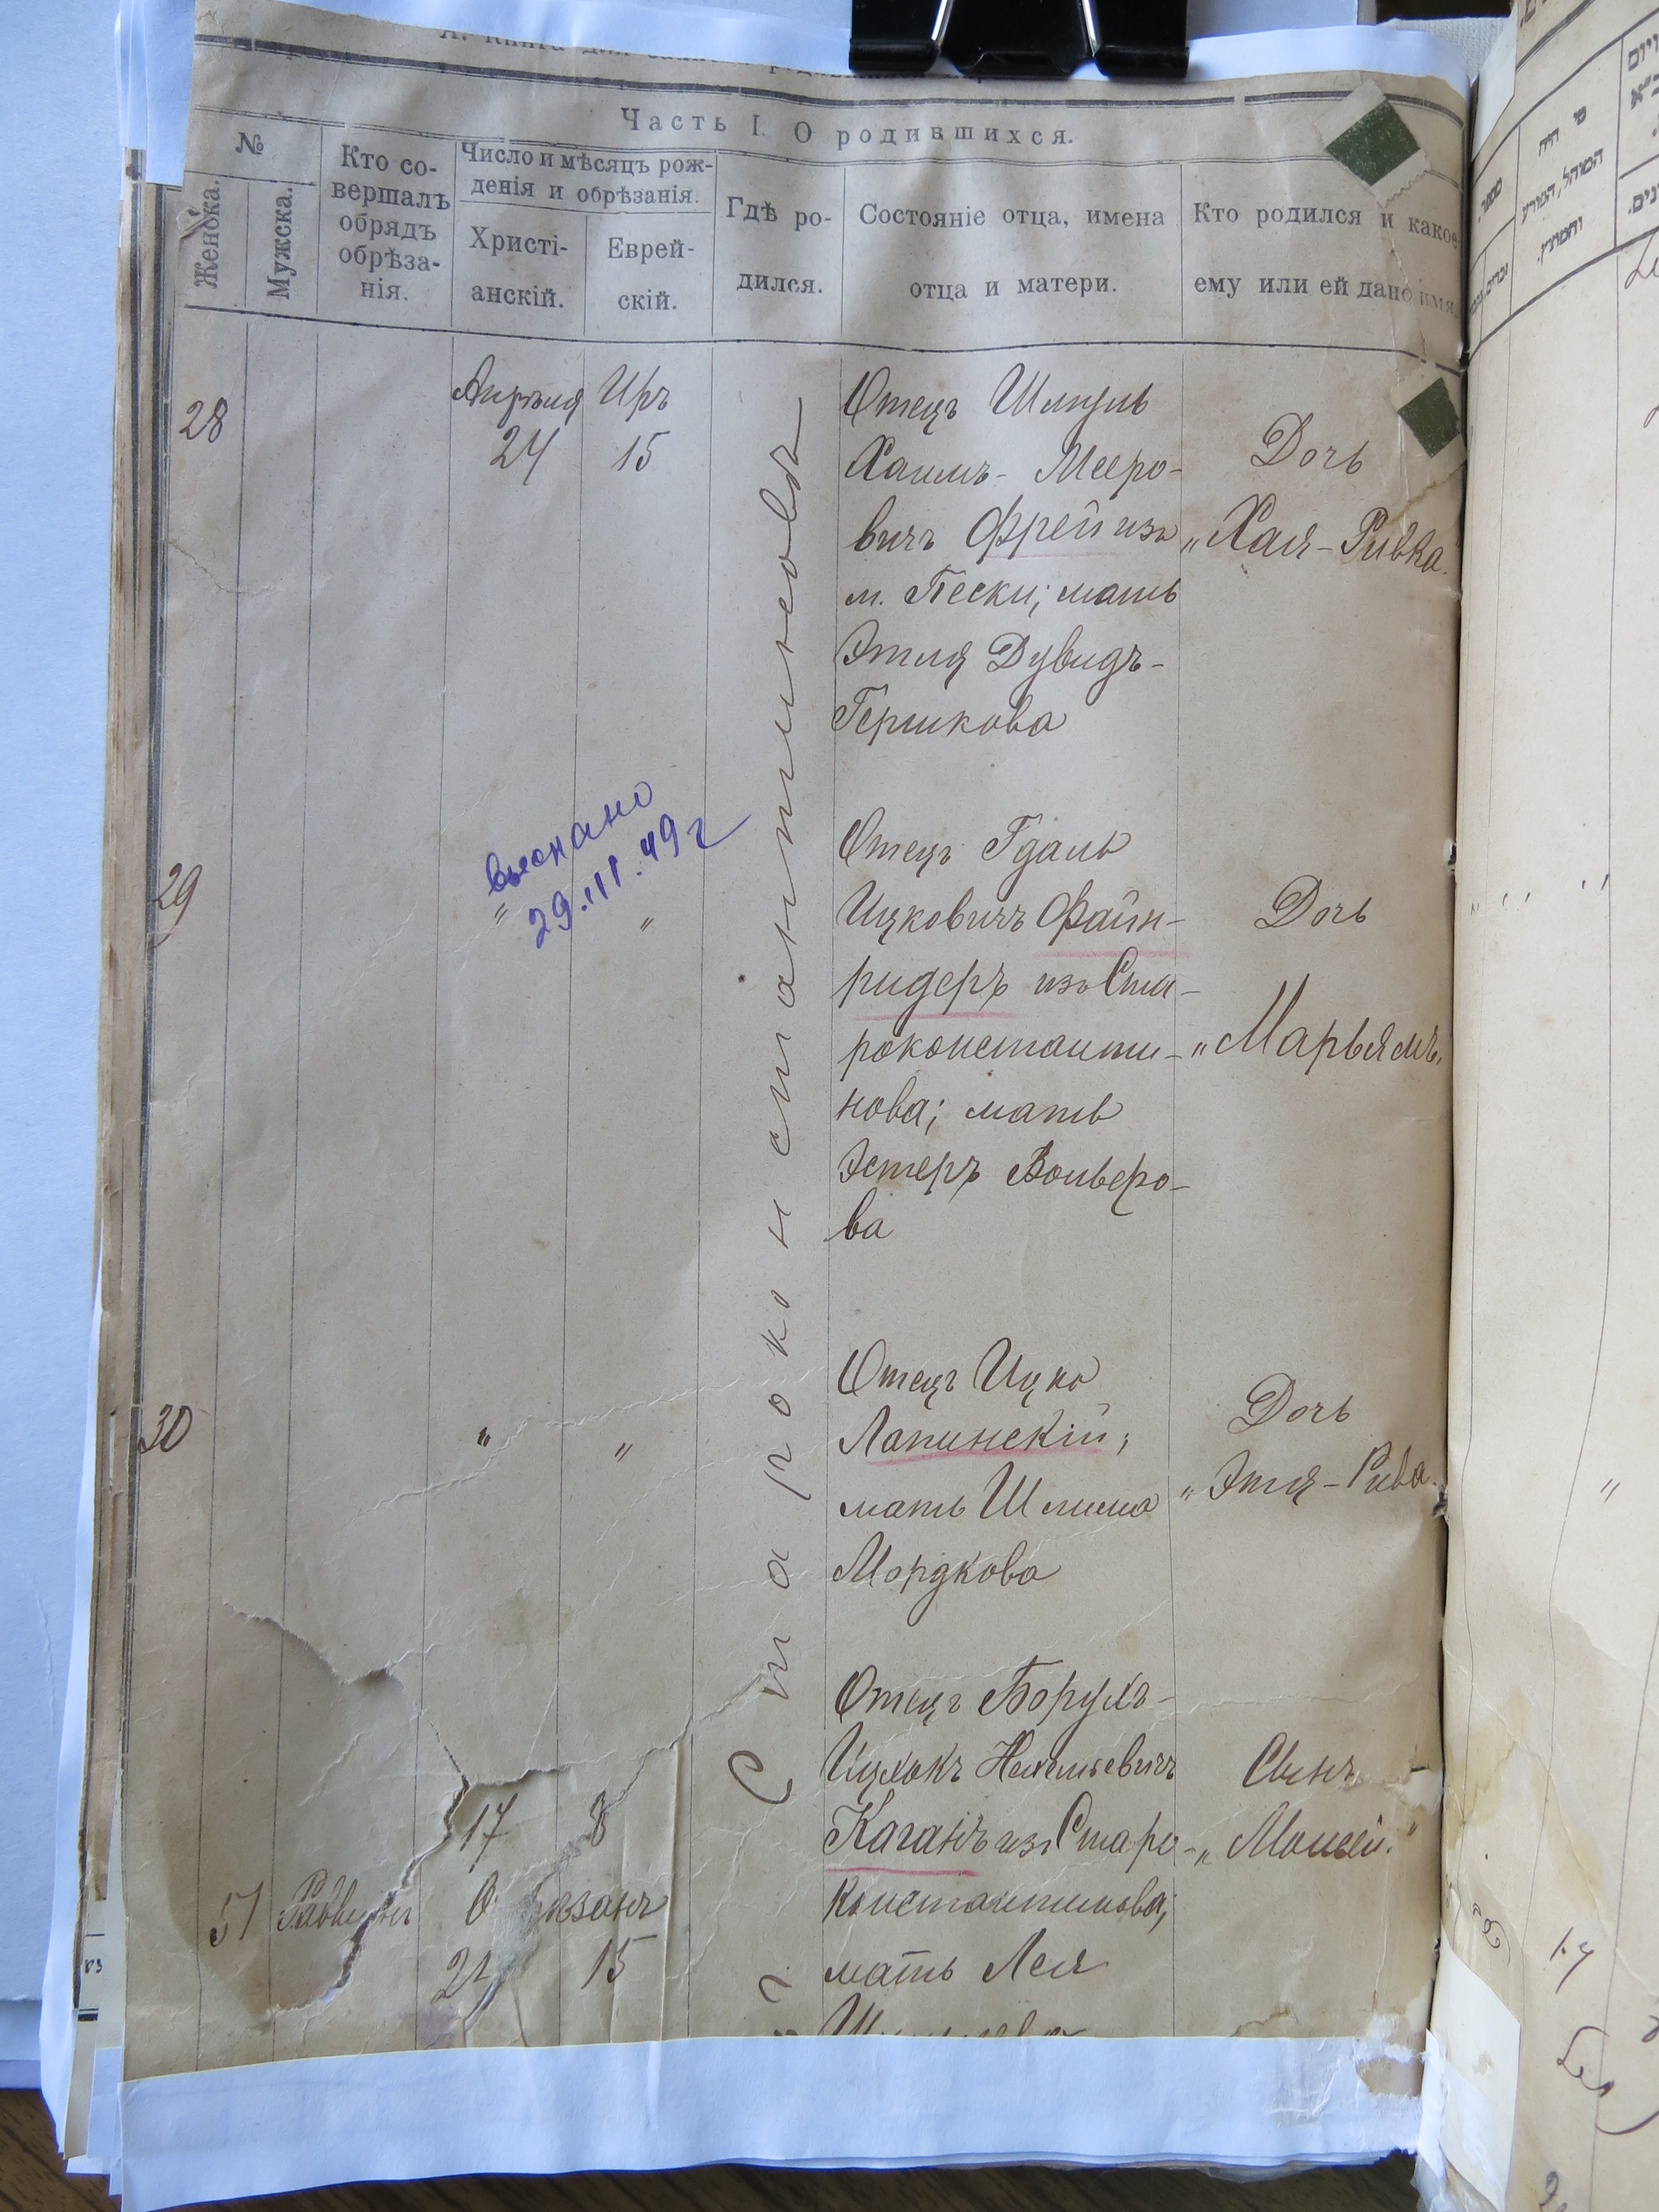 Часть I. О родившихся.
№
Женска.
Мужска.
Кто со-
вершалъ
обрядъ
обрѣза-
нія.
Число и мѣсяцъ рож-
денія и обрѣзанія.
Христі-
анскій.
Еврей-
скій.
Гдѣ ро-
дился.
Состояніе отца, имена
отца и матери.
Кто родился и какое
ему или ей дано имя
28
Апрѣля
24
Ир
15
Староконстантиновъ
Отецъ Шмуль
Хаимъ-Мееро-
вичъ Фрей изъ
м. Пески; мать
Этля Дувидъ-
Гершкова
Дочь
„Хая-Ривка.
29
"
"
29.III.49 г
Отецъ Гдаль
Ицковичъ Файн-
ридеръ изъ Ста-
роконстанти-
нова; мать
Эстеръ Вольфо-
ва
Дочь
„Марьямъ„
30
"
"
Отецъ Ицко
Лапинскій;
мать Шлима
Мордкова
Дочь
„Этя-Рива.
51
17
8
21
15
Отецъ Борухъ-
Ицхокъ
Каганъ изъ Старо-
константинова;
мать Лея
Сынъ
„Моисей."